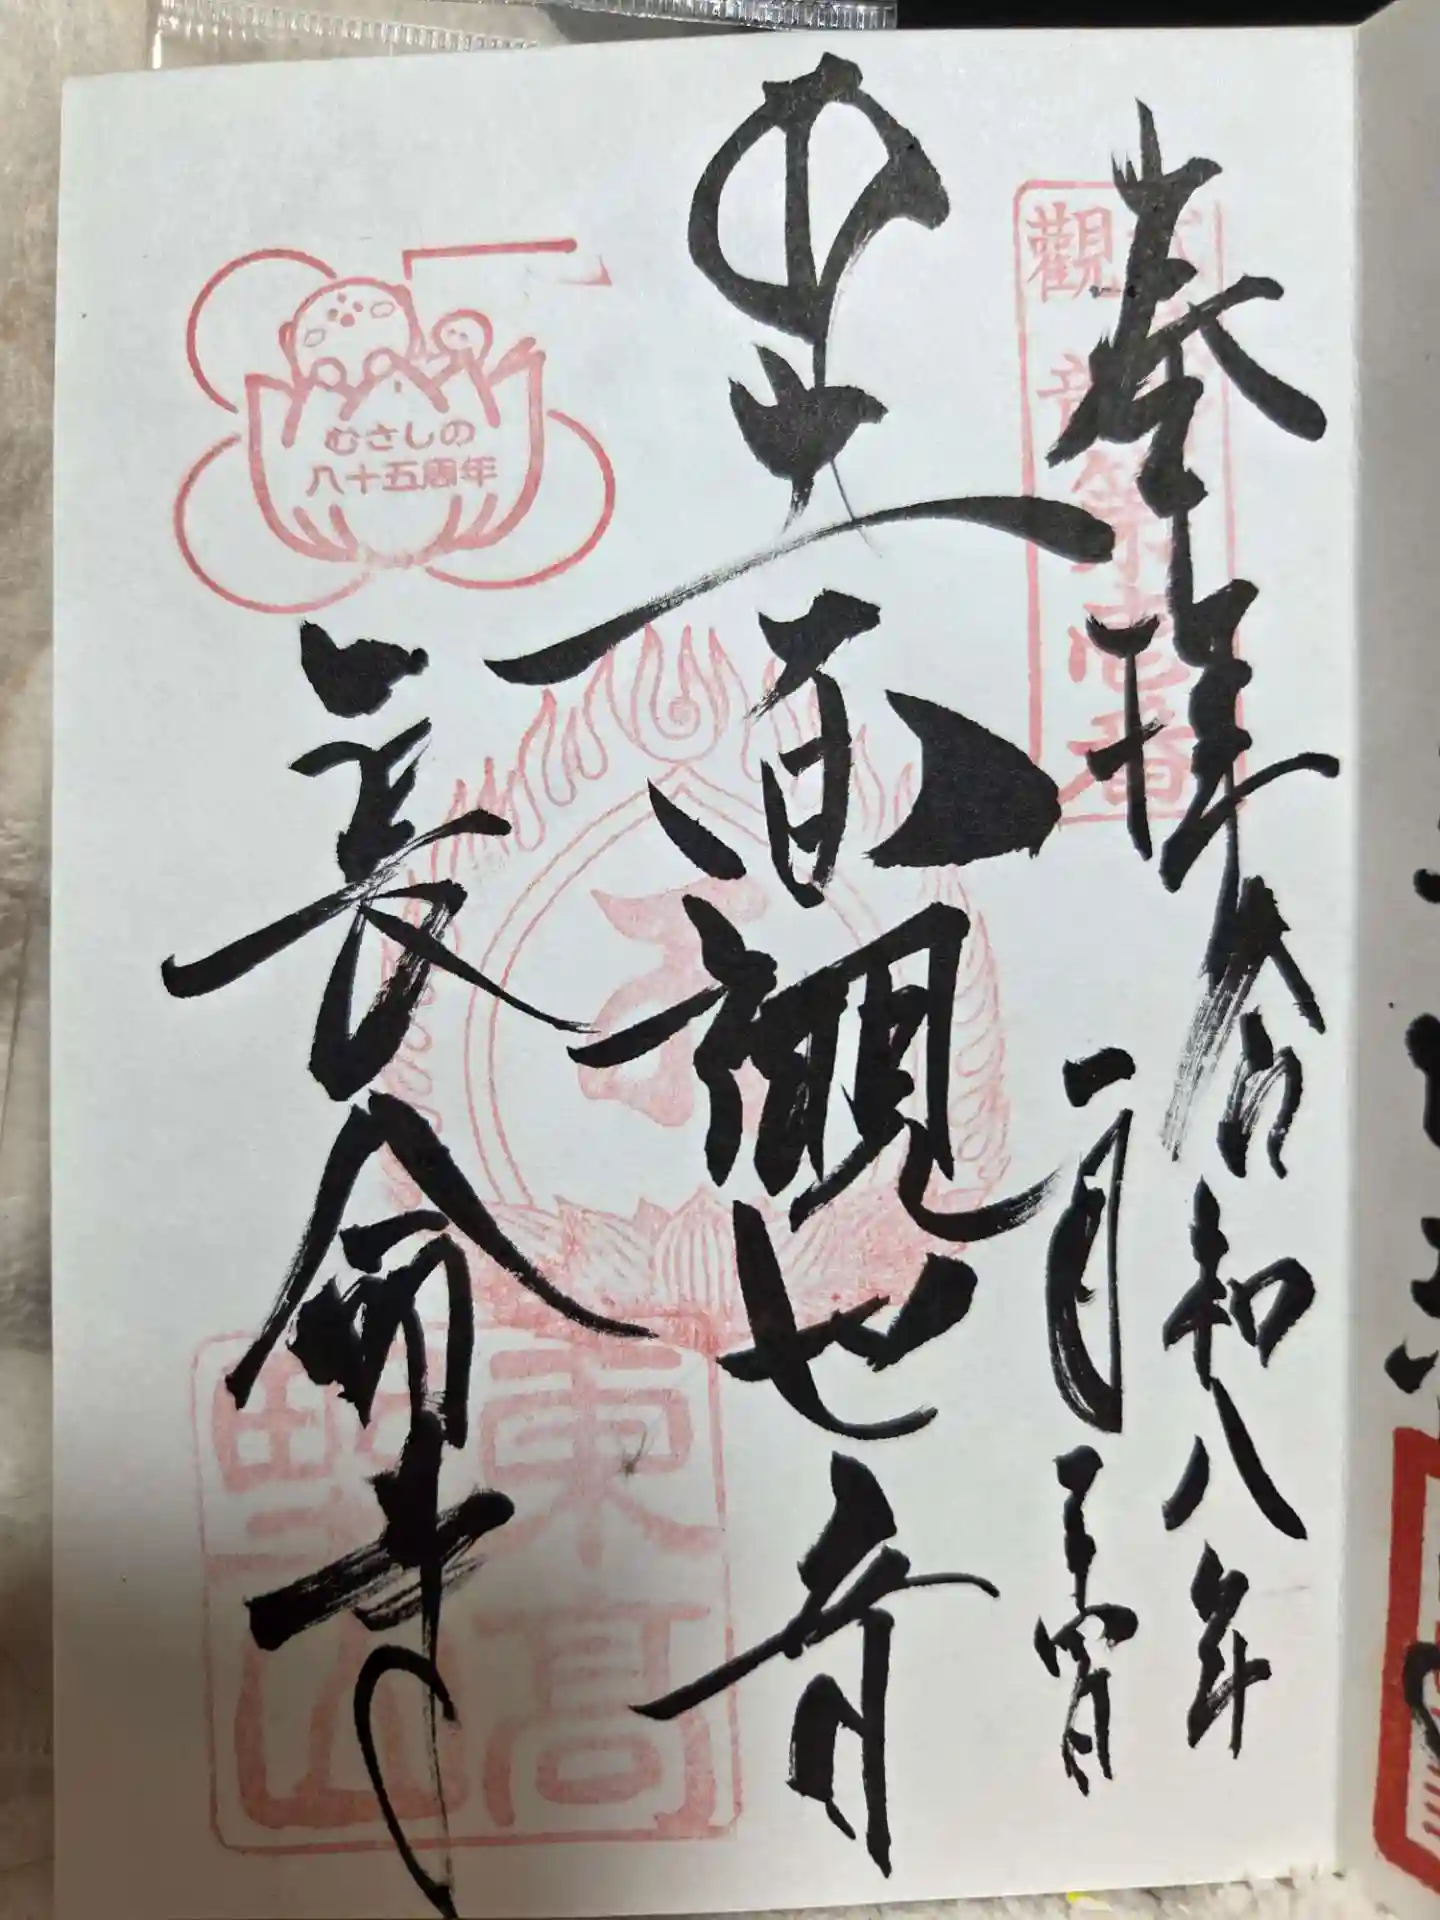 奉拝
令和八年
二月二十四日
十一面観世音
長命寺
觀音第壱番
むさしの
八十五周年
東高野山